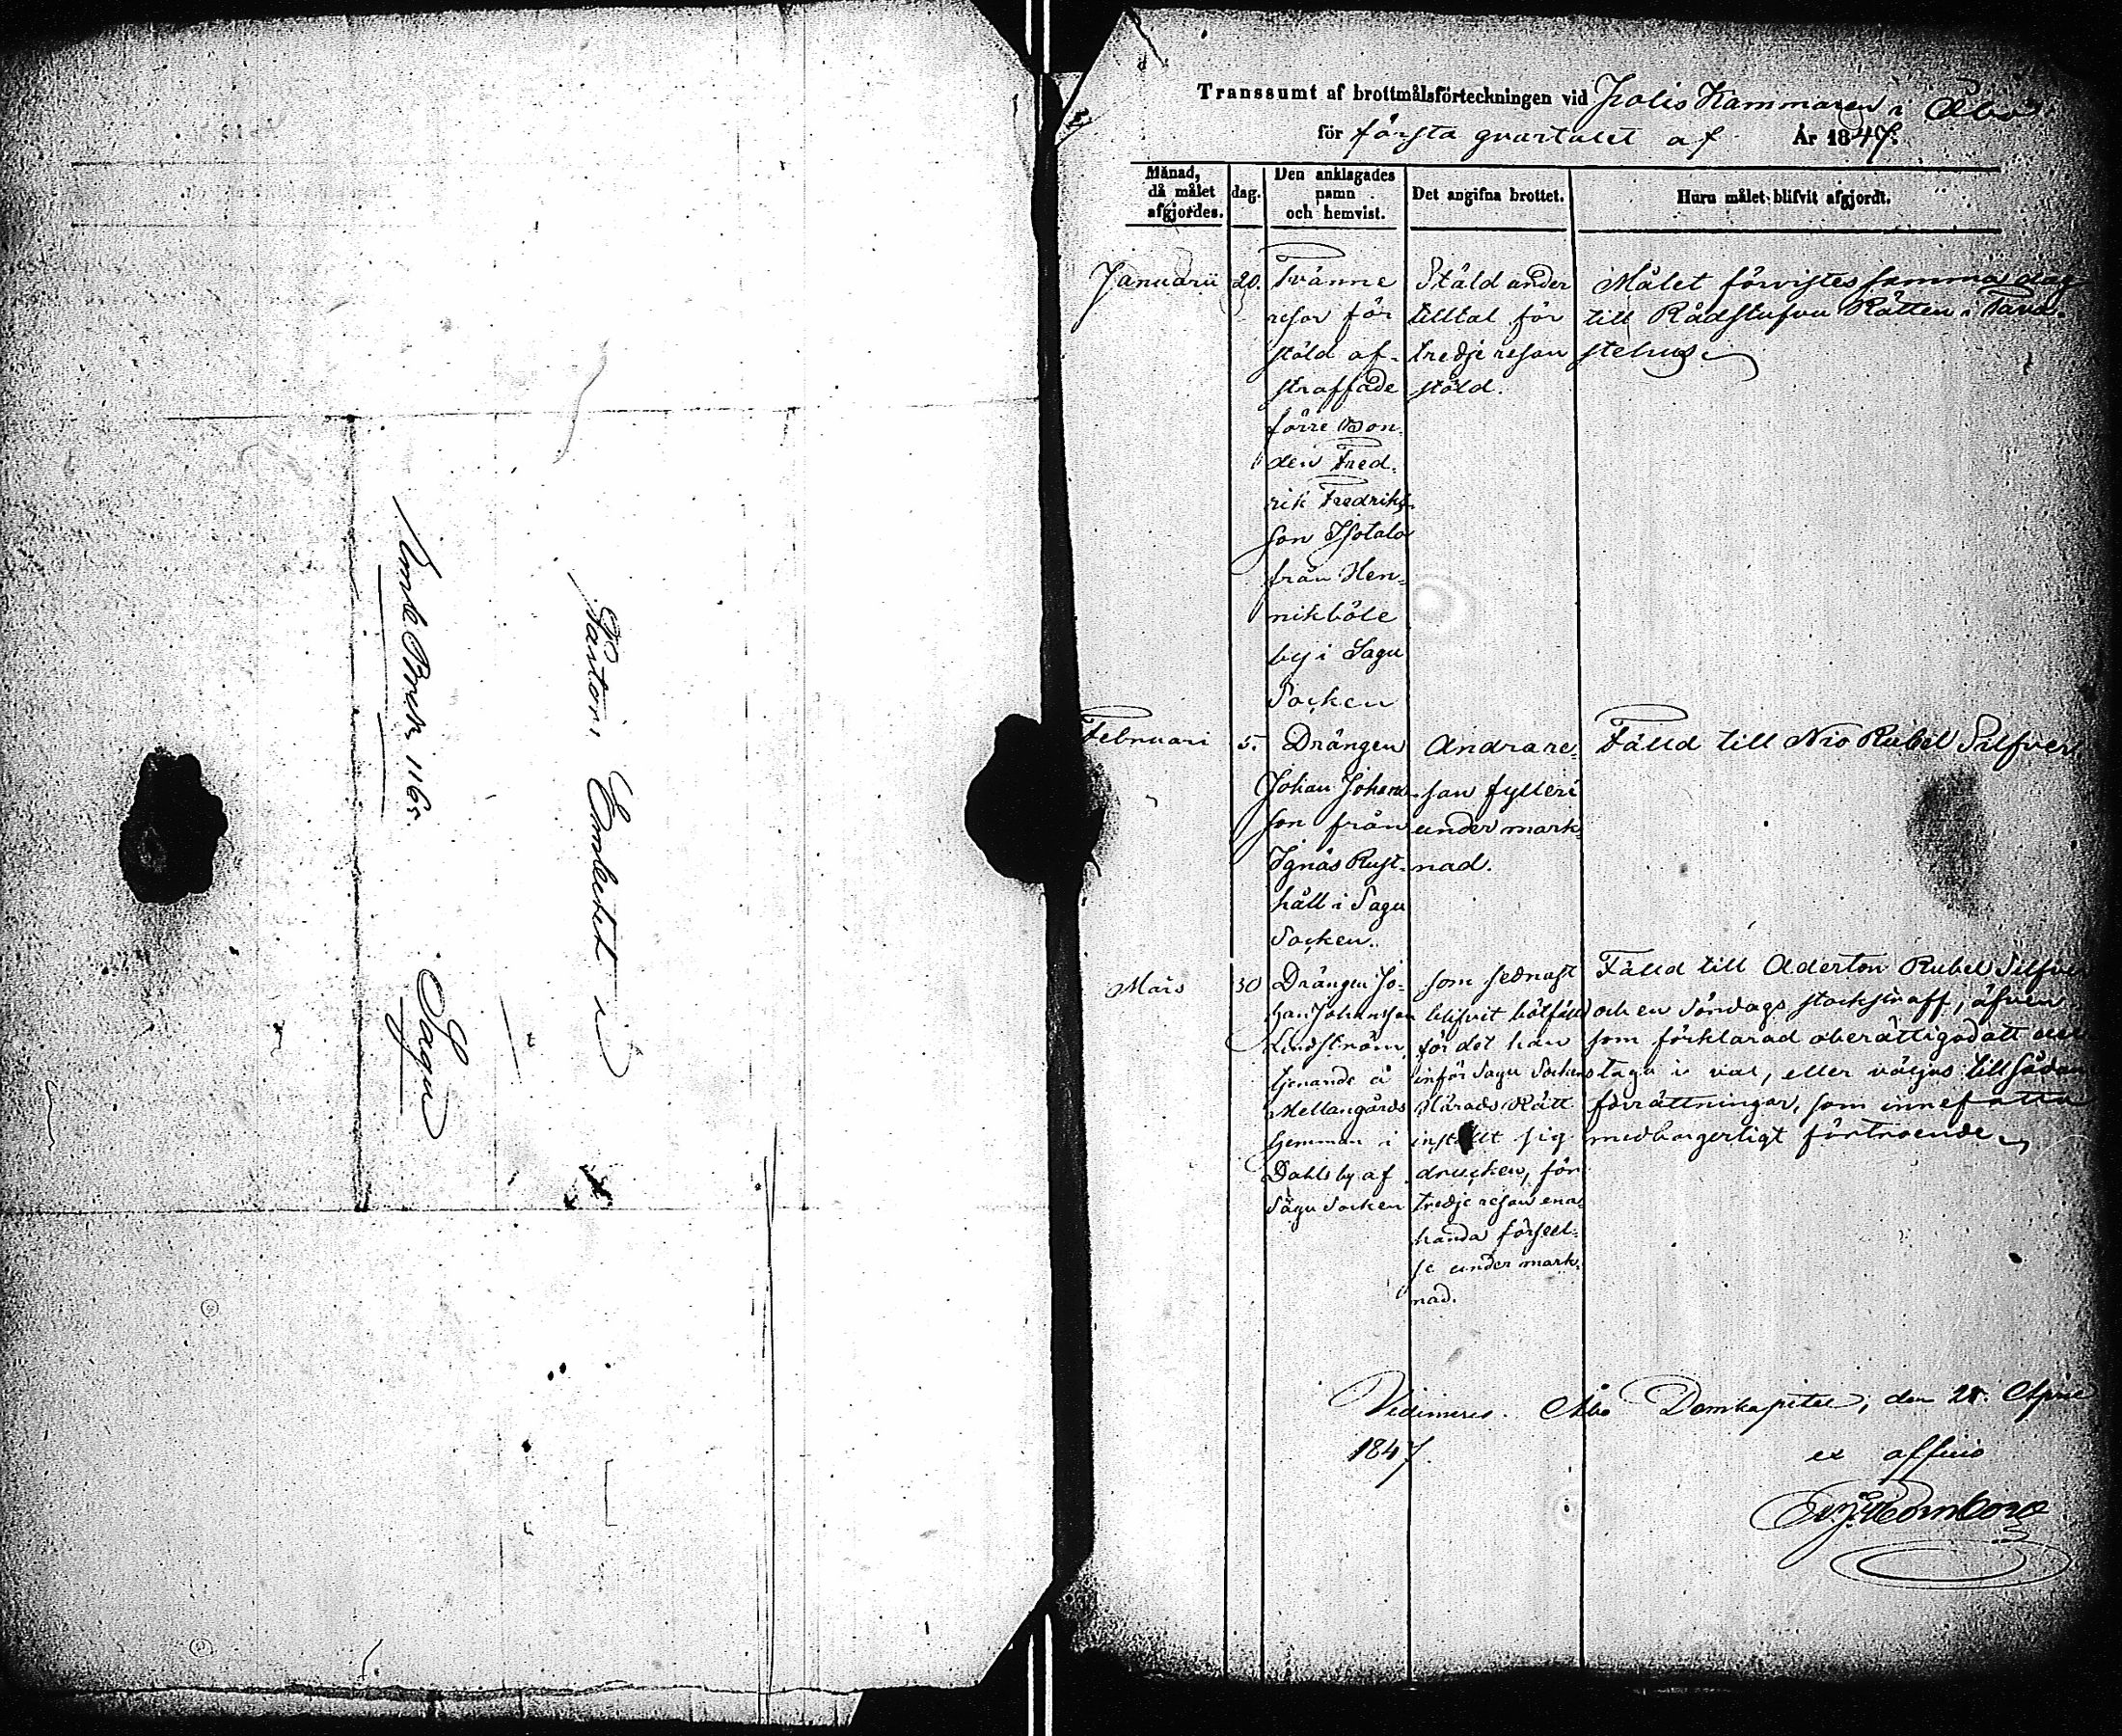 Pastors Embetet i
Sagu
Transsumt af brottmålsförteckningen vid Polis Kammaren i Åbo
för första qvartalet af År 1847.
Månad,
då målet
afgjordes.
dag.
Den anklagades
namn
och hemvist.
Det angifna brottet.
Huru målet blifvit afgjordt.
Januarii
20.
Tvänne
resor för
stöld af-
straffade
förre Bon-
den Fred-
rik Fredriks-
son Isotalo
från Hen-
nikböle
by i Sagu
Socken
Stäld under
tilltal för
tredje resan
stöld.
Målet förvistes samma dag
till Rådstufvu Rätten i Tava-
stehus.
Februari
5.
Drängen
Johan Johans-
son från
Ignäs Rust-
håll i Sagu
Socken.
Andra re-
san fylleri
under mark-
nad.
Fälld till Nio Rubel Silfver
Mars
30
Drängen Jo-
han Johansson
Lindström,
tjenande å
Mellangårds
hemman i
Dahls by af
Sagu Socken
som sednast
blifvit bötfälld
för det han
inför Sagu Sockens
Härads Rätt
inställt sig
drucken, för
tredje resan ena-
handa förseel-
se under mark-
nad.
Fälld till Aderton Rubel Silfver
och en Söndags stockstraff, äfven
som förklarad oberättigad att del-
taga i val, eller väljas till sådan
förrättningar, som innefatta
medborgerligt förtroende.
Vidimeras. Åbo Domkapitel, den 28. April
1847.
ex officio